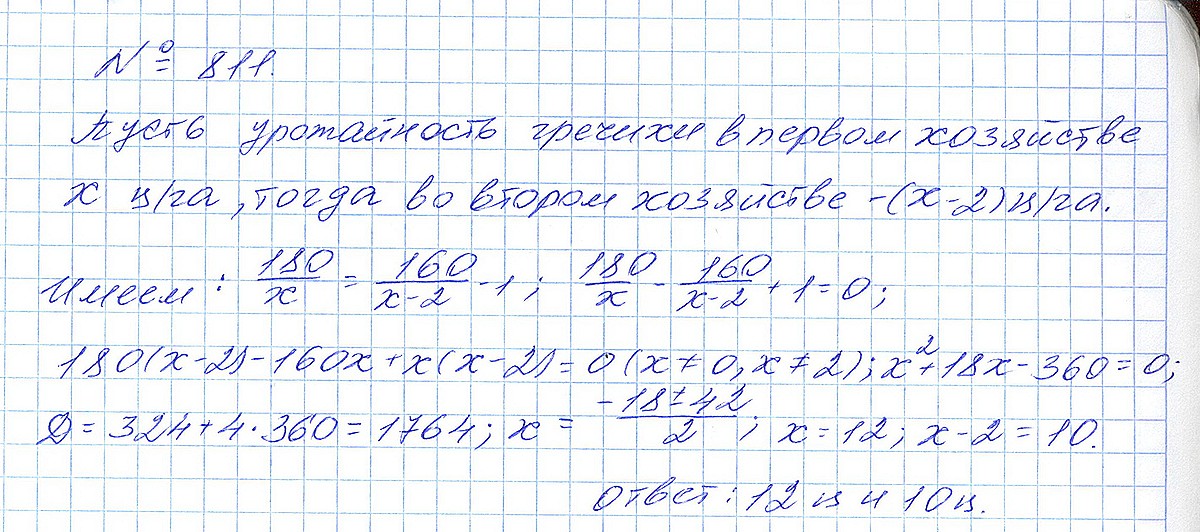 № 811.
Пусть урожайность гречихи в первом хозяйстве
x ц/га, тогда во втором хозяйстве -(x-2) ц/га.
Имеем: 180/x = 160/(x-2) - 1; 180/x - 160/(x-2) + 1 = 0;
180(x-2) - 160x + x(x-2) = 0 (x ≠ 0, x ≠ 2); x² + 18x - 360 = 0;
D = 324 + 4·360 = 1764; x = (-18 ± 42)/2; x = 12; x - 2 = 10.
Ответ: 12 ц и 10 ц.